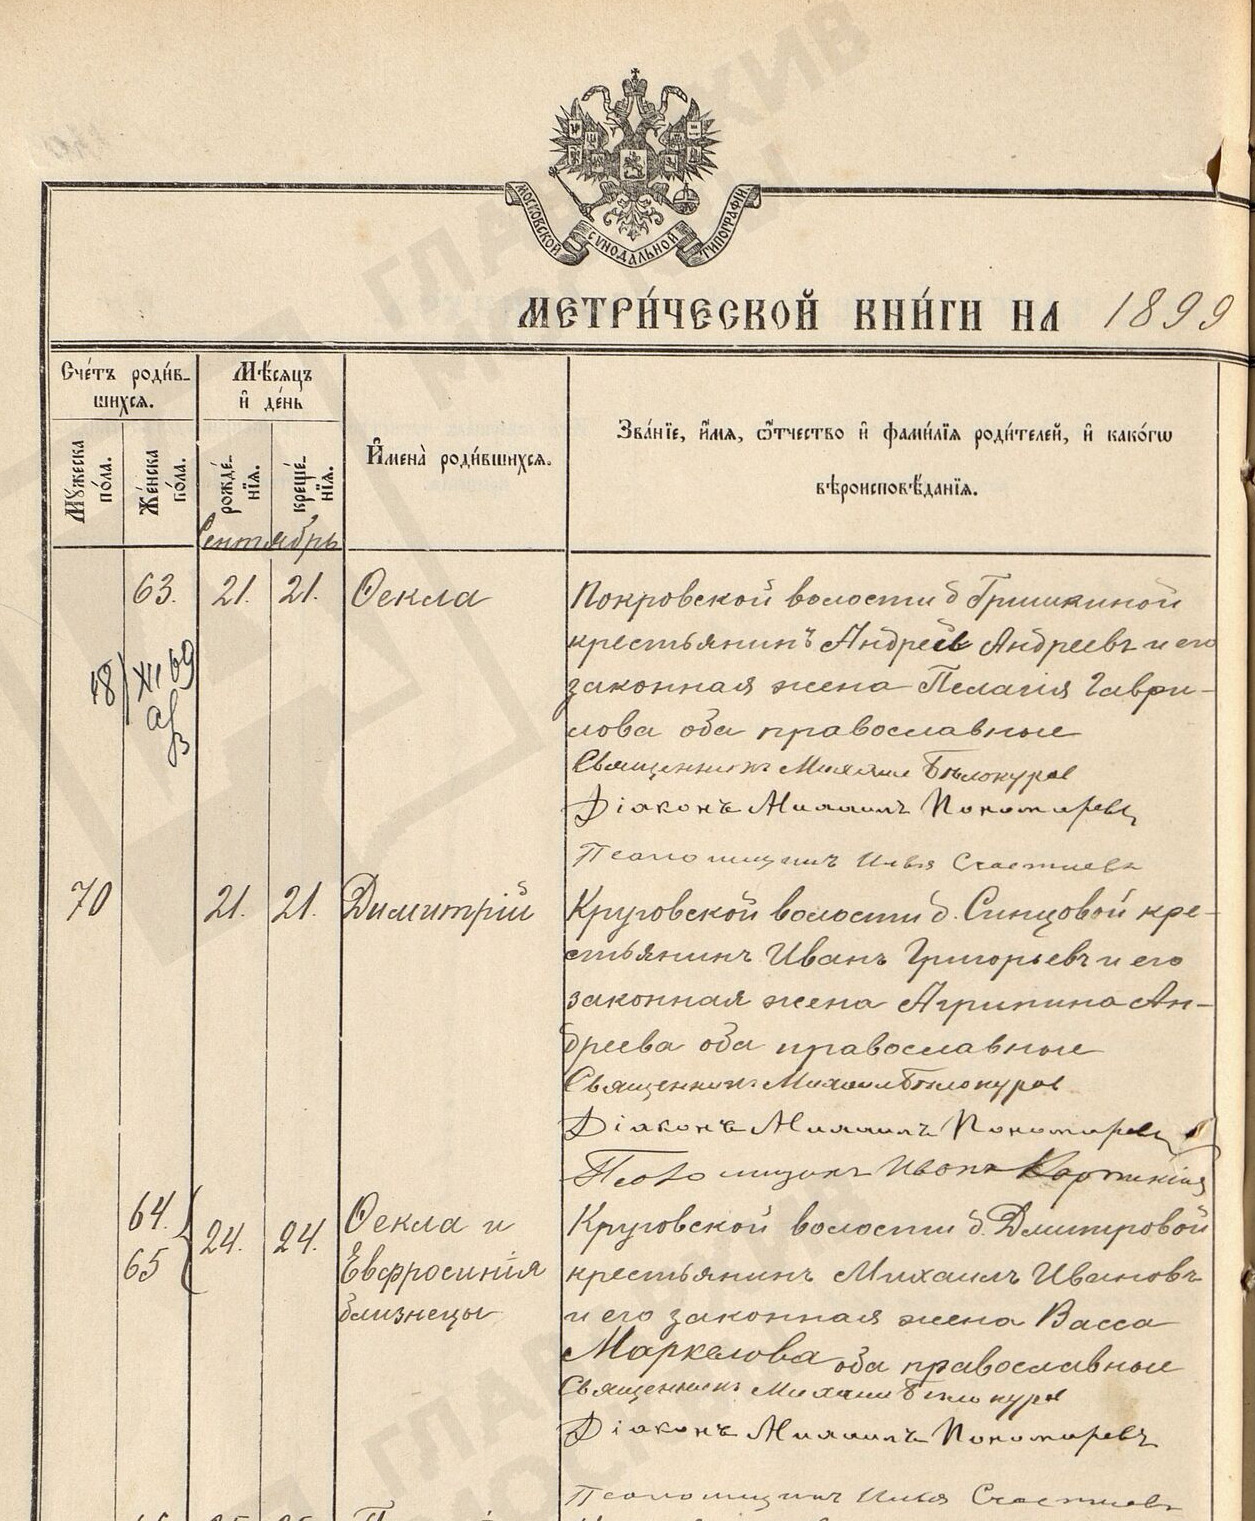 МОСКОВСКОЙ СѴНОДАЛЬНОЙ ТИПОГРАФІИ.
МЕТРИ́ЧЕСКОЙ КНИ́ГИ НА 1899
Сче́тъ роди́в-
шихсѧ.
Мꙋ́жеска
по́ла.
Же́нска
по́ла.
Мѣ́сѧцъ
и҆ де́нь
рожде́-
нїѧ.
креще́-
нїѧ.
И҆мена̀ роди́вшихсѧ.
Зва́нїе, и҆́мѧ, ѻ҆́тчество и҆ фами́лїѧ роди́телей, и҆ како́гѡ
вѣроисповѣ́данїѧ.
Сентябрь
63. 21. 21. Ѳекла
Покровской волости д Гришкиной
крестьянинъ Андрей Андреевъ и его
законная жена Пелагія Гаври-
лова оба православные
Священникъ Михаил Бѣлокуров
Діаконъ Михаилъ Пономаревъ
Псаломщикъ Илья Счастневъ
18/XI 69
70 21. 21. Димитрій
Круговской волости д. Синцовой кре-
стьянинъ Иванъ Григорьевъ и его
законная жена Агрипина Ан-
дреева оба православные
Священникъ Михаил Бѣлокуров
Діаконъ Михаилъ Пономаревъ
Псаломщикъ Иванъ
64. 65 24. 24. Ѳекла и
Евфросинія
близнецы
Круговской волости д. Дмитровой
крестьянинъ Михаилъ Ивановъ
и его законная жена Васса
Маркелова оба православные
Священникъ Михаил Бѣлокуров
Діаконъ Михаилъ Пономаревъ
Псаломщикъ Илья Счастневъ
ГЛАВАРХИВ
МОСКВЫ